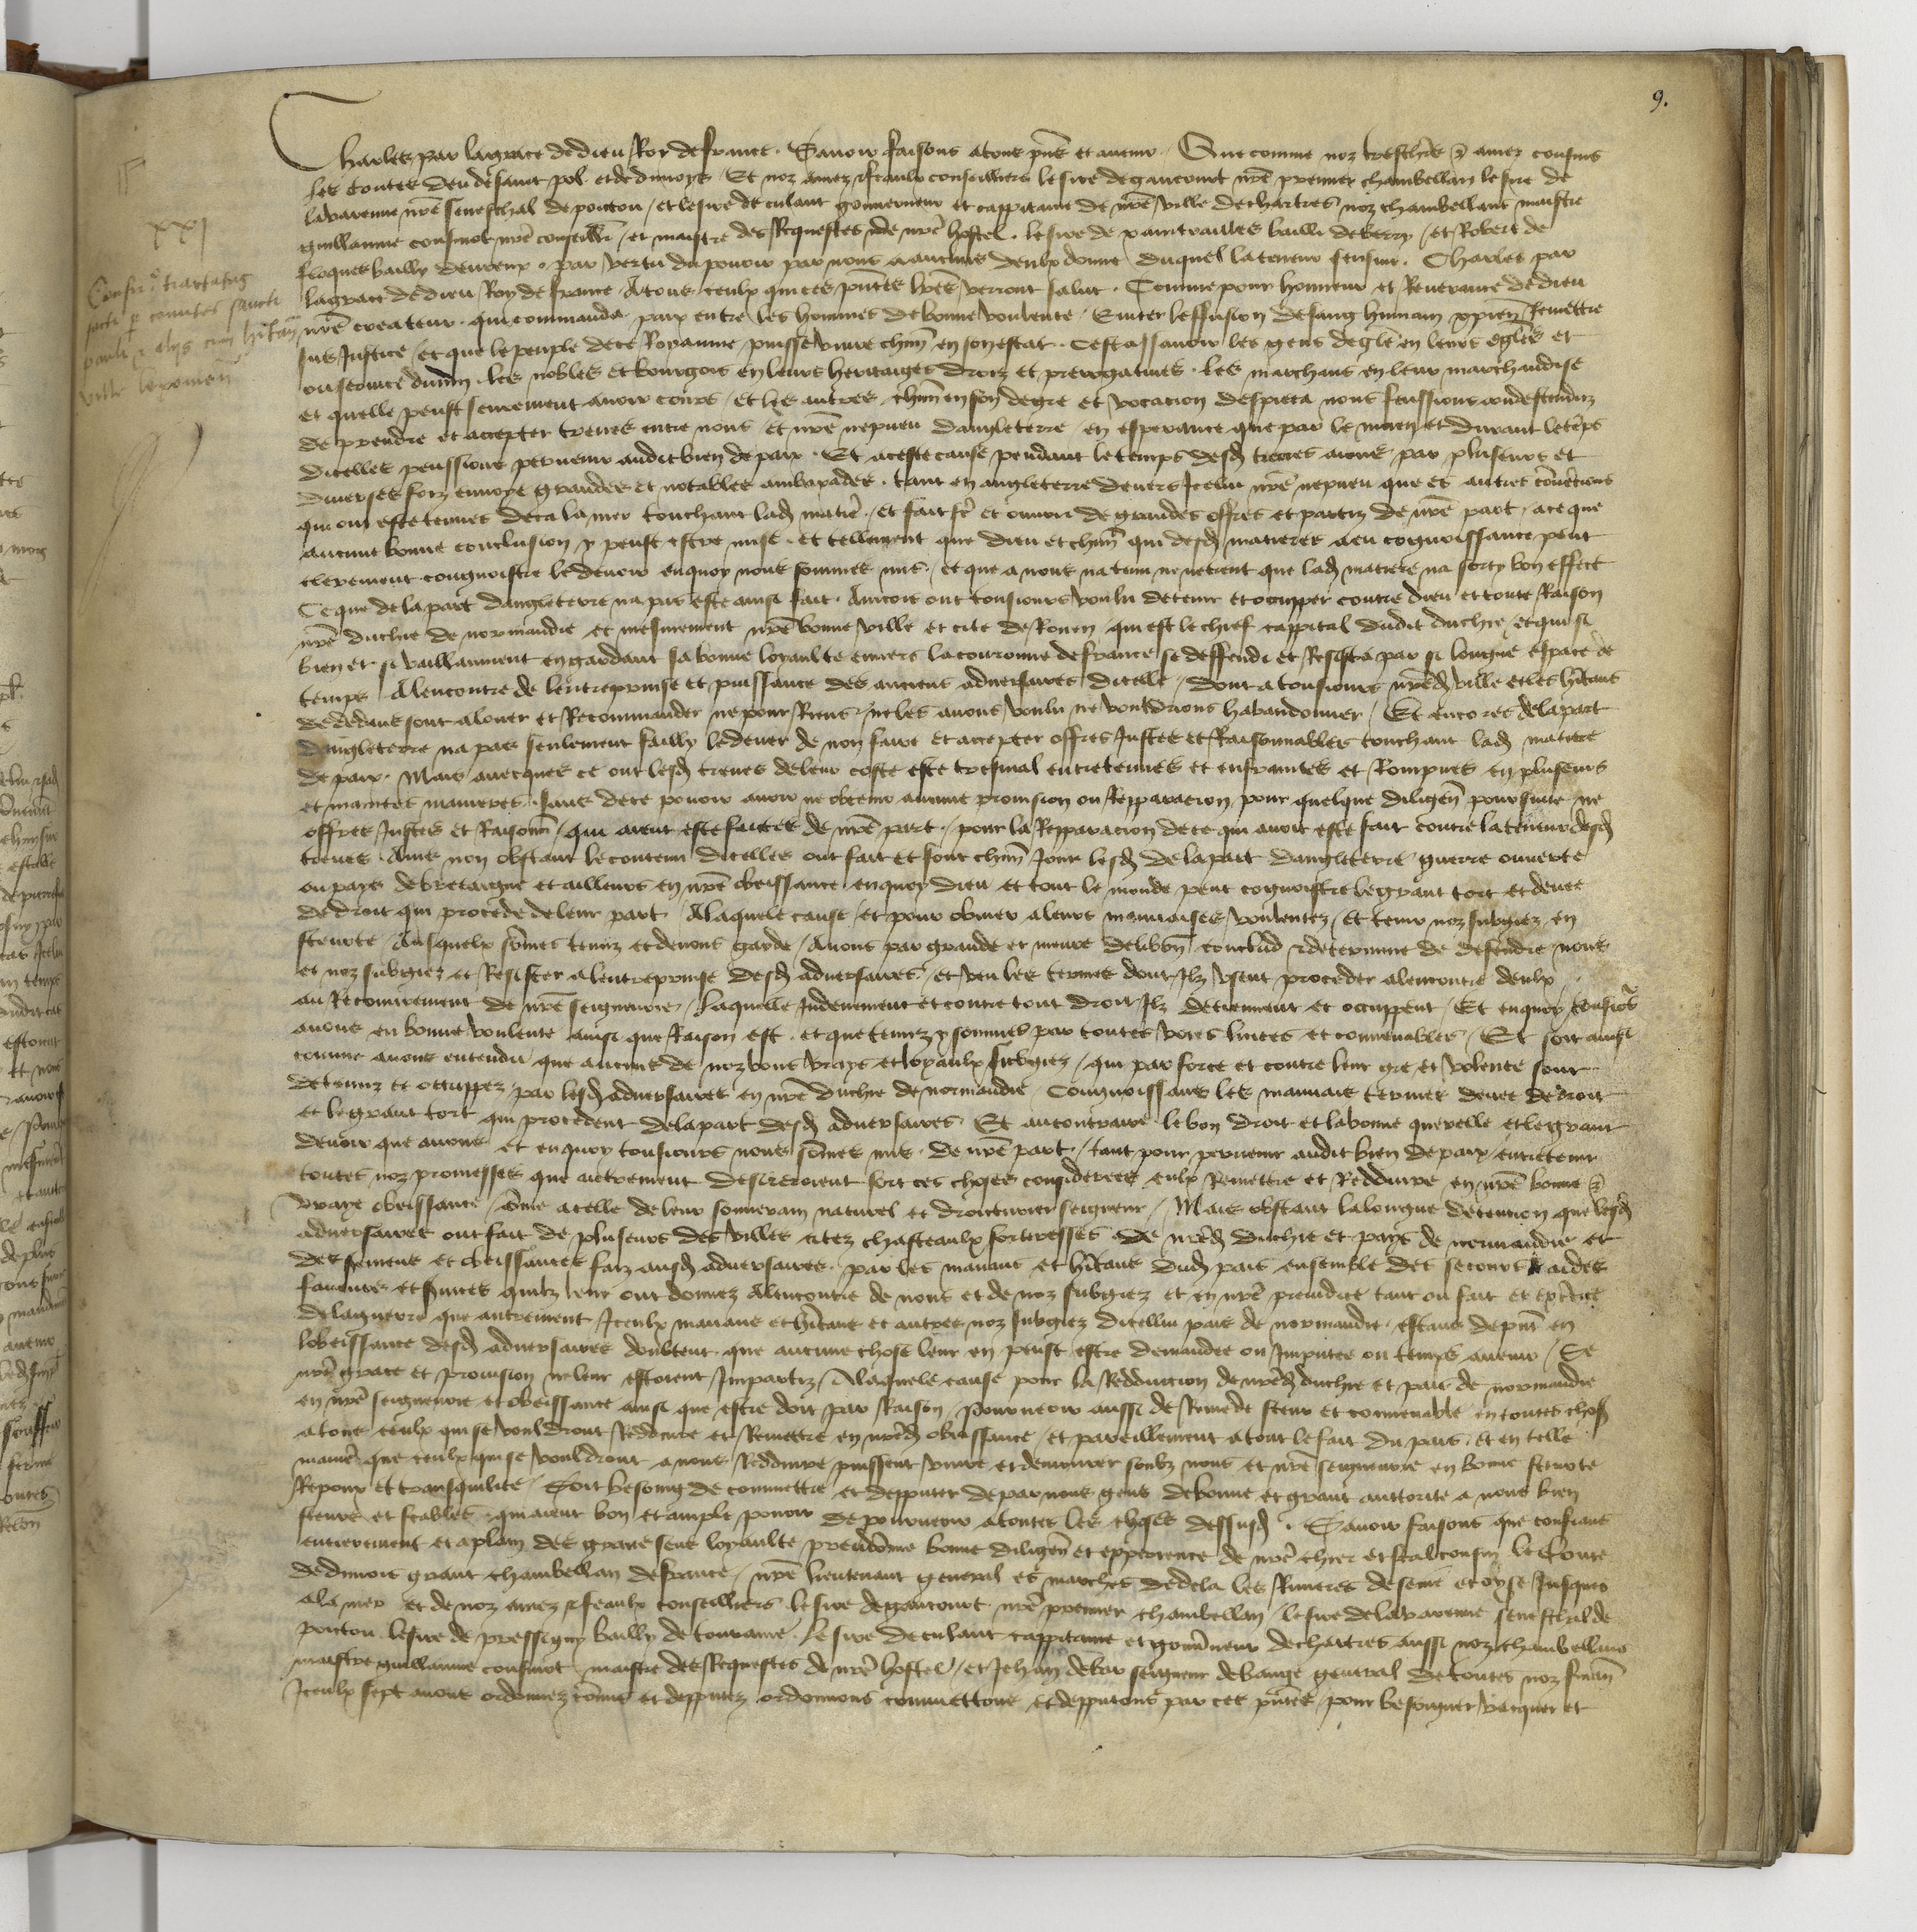 9.
Charles par la grace de dieu Roy de france. Savoir faisons a tous pñs et avenir. Que comme noz treschiers & amez cousins
les contes deu de saint pol et de dunoys. Et noz amez & feaulx conseilliers le sire de gaucourt nr̃e premier chambellan le sire de
la varenne nr̃e seneschal de poictou / et le sire de culant gouverneur et cappitaine de nr̃e ville de chartres noz chambellans maistre
guillaume cousinot nr̃e conseill̃r / et maistre des Requestes de nr̃e hostel. le sire de xaintrailles bailli de berry / et Robert de
flocques bailly devreux. par vertu du povoir par nous a aucuns deulx donne duquel la teneur sensuit. Charles par
la grace de dieu Roy de france. A tous ceulx qui ces pñtes lr̃es verront salut. Comme pour honneur et Reverance de dieu
nr̃e createur. qui commanda paix entre les hommes de bonne voulente. Eviter leffusion de sang humain xpien Remettre
sus Justice / et que le peuple de ce Royaume puisse vivre chũn en son estat. Cest assavoir les gens degl̃e en leurs egl̃es et
ou service divin. les nobles et bourgois en leurs heritaiges droiz et prerogatives. les marchans en leur marchandise
et quelle peust seurement avoir cours / et les autres chũn en son degre et vocacion despieca nous feussions condescenduz
de prendre et accepter treves entre nous / et nr̃e nepveu dangleterre en esperance que par le moien et durant le temps
dicelles peussions pervenir audit bien de paix. Et a ceste cause pendant le temps desd̃ treves aions par pluseurs et
diverses foiz envoye grandes et notables ambaxades. tant en angleterre devers Icelui nr̃e nepveu que es autres convencions
qui ont este tenues deca la mer touchant lad̃ matier̃. et fait fr̃e et ouvrir de grandes offres et partiz de nr̃e part / a ce que
aucune bonne conclusion y peust estre mise. et tellement que dieu et chũn qui desd̃ matieres a eu cognoissance peut
clerement congnoistre le devoir enquoy nous sommes mis. et que a nous na tenu ne ne tient que lad̃ matiere na sorty bon effect
Ce que de la part dangleterre na pas este ainsi fait. Aincois ont tousiours voulu detenir et occupper contre dieu et toute Raison
nr̃e duchie de normandie et mesmement nr̃e bonne ville et cite de Rouen qui est le chief cappital dudit duchie / et qui si
bien et si vaillamment en gardant sa bonne loyaulte envers la couronne de france se deffendi et Resista par si longue espace de
temps Alencontre de lentreprinse et puissance des anciens adversaires dicelle / dont a tousiours nr̃ed̃ ville et les hĩtans
de dedans sont a louer et Recommander ne pour Riens ne les avons voulu ne vouldrions habandonner / Et encores de la part
dangleterre na pas seulement failly le dever de non faire et accepter offres Justes et Raisonnables touchant lad̃ matiere
de paix. Mais avecques ce ont lesd̃ treves de leur coste este tresmal entretenues et enfraintes et Rompues en pluseurs
et maintes manieres. sans de ce povoir avoir ne obtenir aucune provision ou Repparacion pour quelque diligenc̃ poursuite ne
offres Justes et Raisonñ / qui aient este faictes de nr̃e part. / pour la Repparacion de ce qui avoit este fait contre la teneur desd̃
treves. Ains non obstant le contenu dicelles ont fait et font chũn Jour lesd̃ de la part dangleterre guerre ouverte
ou pays de bretaigne et ailleurs en nr̃e obeissance en quoy dieu et tout le monde peut cognoistre le grant tort et devee
de droit qui procede de leur part A laquele cause / et pour obvier a leurs mauvaises voulentez / Et tenir noz subgiez en
seurte / Ausquelx sõmes tenuz et devons garde / Avons par grande et meure delibõn conclud & determine de deffendre nous
et noz subgiez et Resister a lentreprinse desd̃ adversaires / et veu les termes dont Ilz usent proceder alencontre deulx
au Recouvrement de nr̃e seigneurie / laquelle Indeuement et contre tout droit Ilz detiennent et occuppent / Et en quoy tousiõs
avons eu bonne voulente ainsi que Raison est. et que tenuz y sommes par toutes voies licites et convenables / Et soit ainsi
comme avons entendu que aucuns de noz bons vrays et loyaulx subgiez / qui par force et contre leur gre et volente sont
detenuz et occuppez par lesd̃ adversaires en nr̃e duchie de normandie / Congnoissans les mauvais termes devee de droit
et le grant tort qui procedent de la part desd̃ adversaires Et au contraire le bon droit et la bonne querelle et le grant
devoir que avons et en quoy tousiours nous sõmes mis de nr̃e part / tant pour pervenir audit bien de paix entretenir
toutes noz promesses que autrement desireroient fort ces choses considerees eulx Remettre et Reddurre en nr̃e bonne &
vraye obeissance / cõme a celle de leur souverain naturel et droicturier seigneur / Mais obstant la longue detencion que lesd̃
adversaires ont fait de pluseurs des villes citez chasteaulx forteresses de nr̃ed̃ duchie et pays de normandie et
des seremens et obeissances faiz ausd̃ adversaires. par les manans et hĩtans dud̃ pais ensemble des secours & aides
faveurs et suites quilz leur ont donnez Alencontre de nous et de noz subgiez et en nr̃e preiudice tant ou fait et exc̃ice
de la guerre que autrement Iceulx manans et hĩtans et autres noz subgiez dicellui pais de normandie estans de pñt en
lobeissance desd̃ adversaires doubtent que aucune chose leur en peust estre demandee ou Imputee ou temps avenir / Se
nr̃e grace et provision ne leur estoient Impartiz / A laquele cause pour la Redduccion de nr̃ed̃ duchie et pais de normandie
en nr̃e seigneurie et obeissance ainsi que estre doit par Raison / Pourveoir aussi de Remede seur et convenable en toutes chos̃
a tous ceulx qui se vouldront Reddurre et Remettre en nr̃ed̃ obeissance / et pareillement a tout le fait du pais. Et en telle
manier̃ que ceulx qui se vouldront a nous Reddurre puissent vivre et demourer soubz nous et nr̃e seigneurie en bonne seurte
Repoux et transquilite / Soit besoing de commettre et depputer de par nous gens de bonne et grant auttorite a nous bien
seurs et feables / qui aient bon et ample povoir de pourveoir a toutes les choses dessusd̃. Savoir faisons que confians
entierement et a plain des grans sens loyaulte preudõmie bonne diligenc̃ et experience de nr̃e chier et feal cousin le Conte
de dunois grant chambellan de france / nr̃e lieutenant general es marches dedela les Rivieres de seine et oyse Jusques
a la mer et de noz amez & feaulx conseilliers le sire de gaucourt nr̃e premier chambellan / le sire de la varenne seneschal de
poictou le sire de pressigny bailly de touraine. le sire de culant cappitaine et gouṽneur de chartres aussi noz chambellans
maistre guillaume cousinot maistre des Requestes de nr̃e hostel / et Jehan de bar seigneur de bauge general de toutes noz financ̃
Iceulx sept avons ordonnez cõmis et depputez ordonnons commettons et depputons par ces pñtes / pour besongner vacquer et
XXI
Confir̃o tractatus
facti per comites sancti
pauli & alios cum hĩtañ
ville lexovieñ